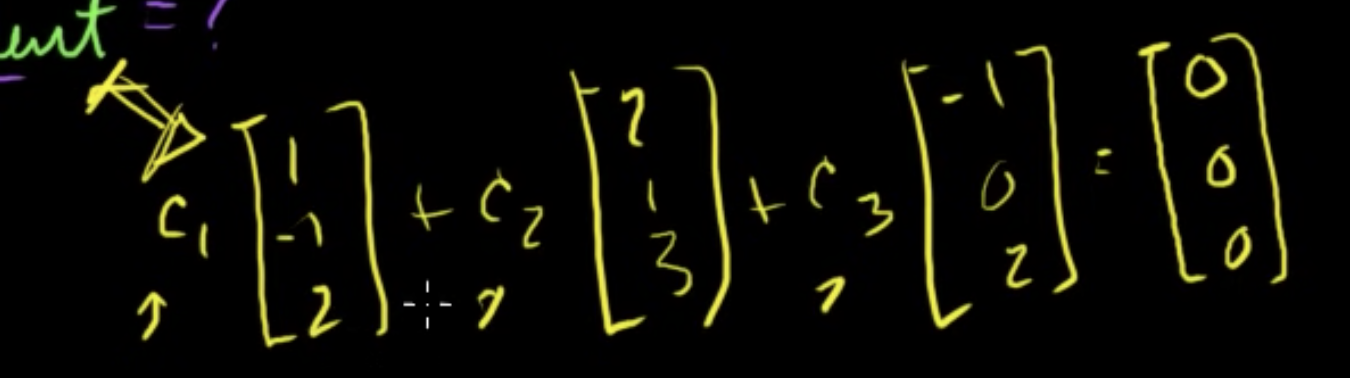 ent = ?
C₁ [1 -1 2] + C₂ [2 1 3] + C₃ [-1 0 2] = [0 0 0]